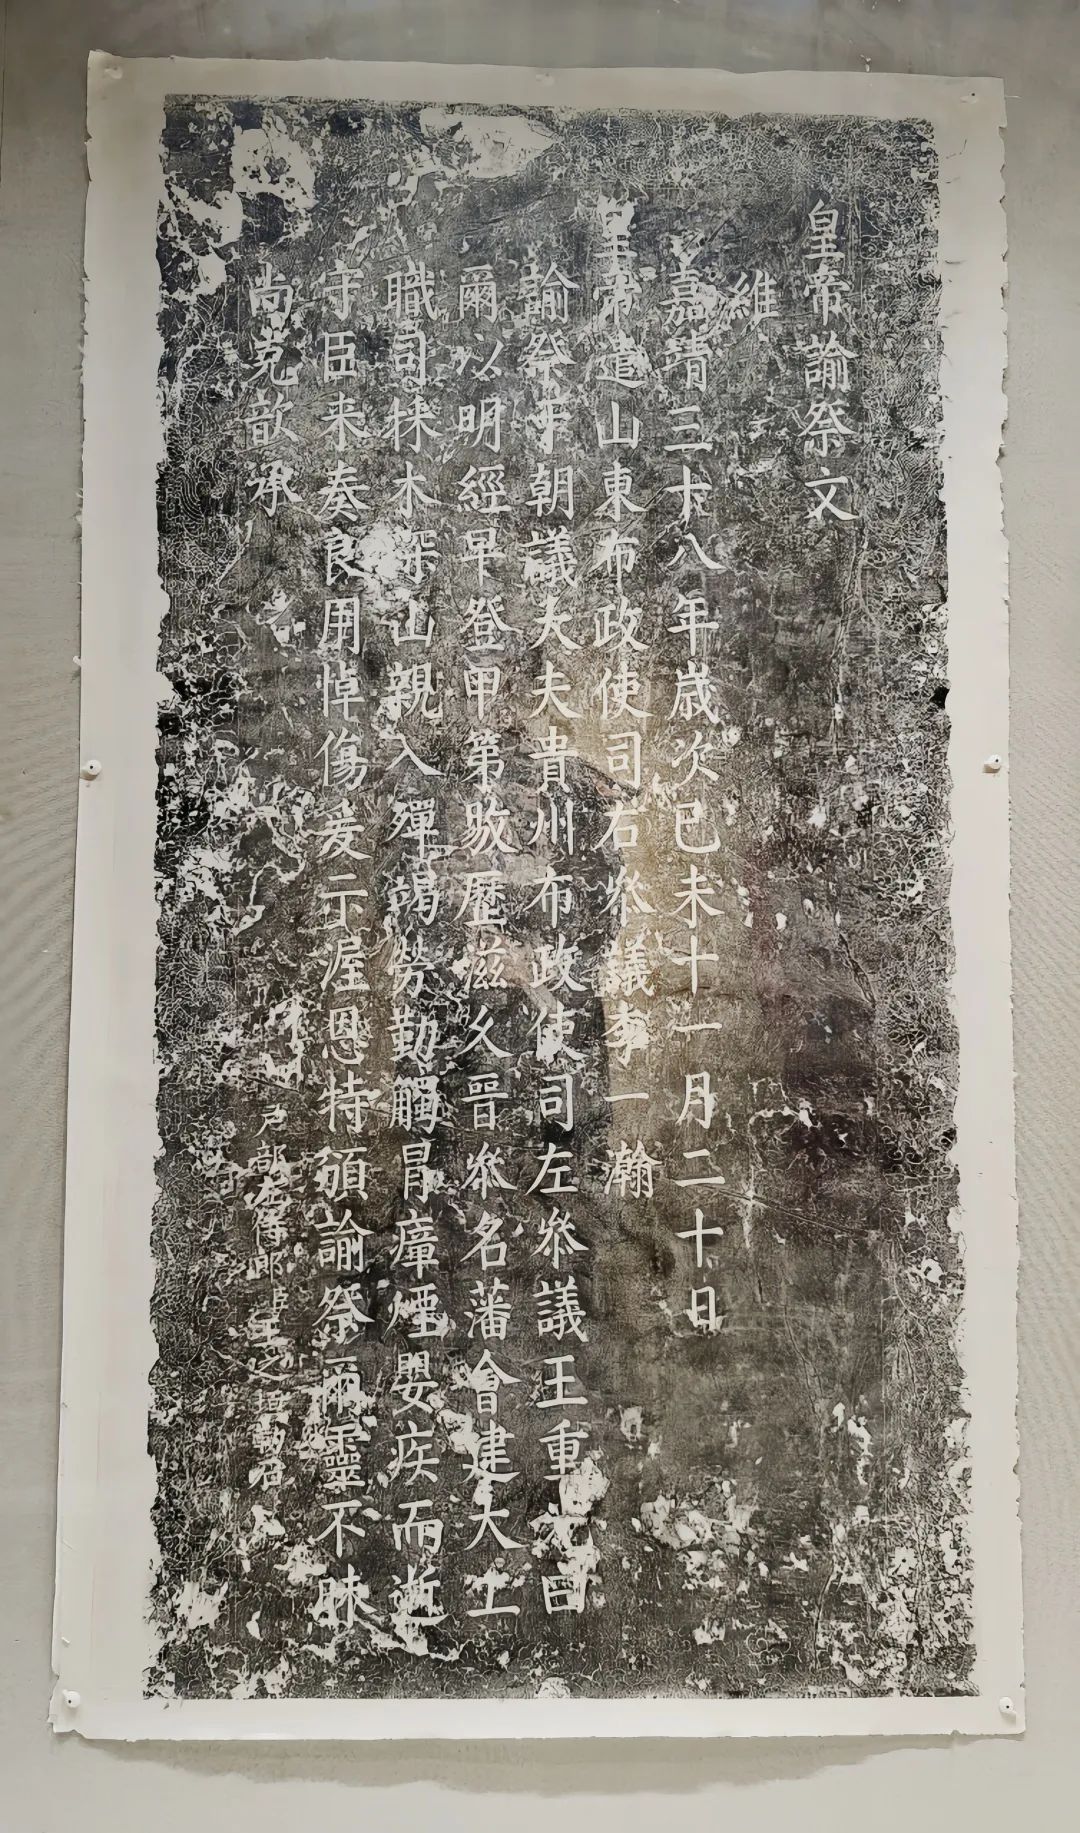 皇帝諭祭文
維
嘉靖三十八年歲次己未十一月二十日
皇帝遣山東布政使司右參議李一瀚
諭祭于朝議大夫貴州布政使司左參議王重光曰
爾以明經早登甲第敭歷滋久晉參名藩會建大工
職司採木深山親入殫竭勞勩觸冒瘴煙嬰疾而逝
守臣来奏良用悼傷爰示渥恩特頒諭祭爾靈不昧
尚克歆承
戶部左侍郎臣王之垣勒石